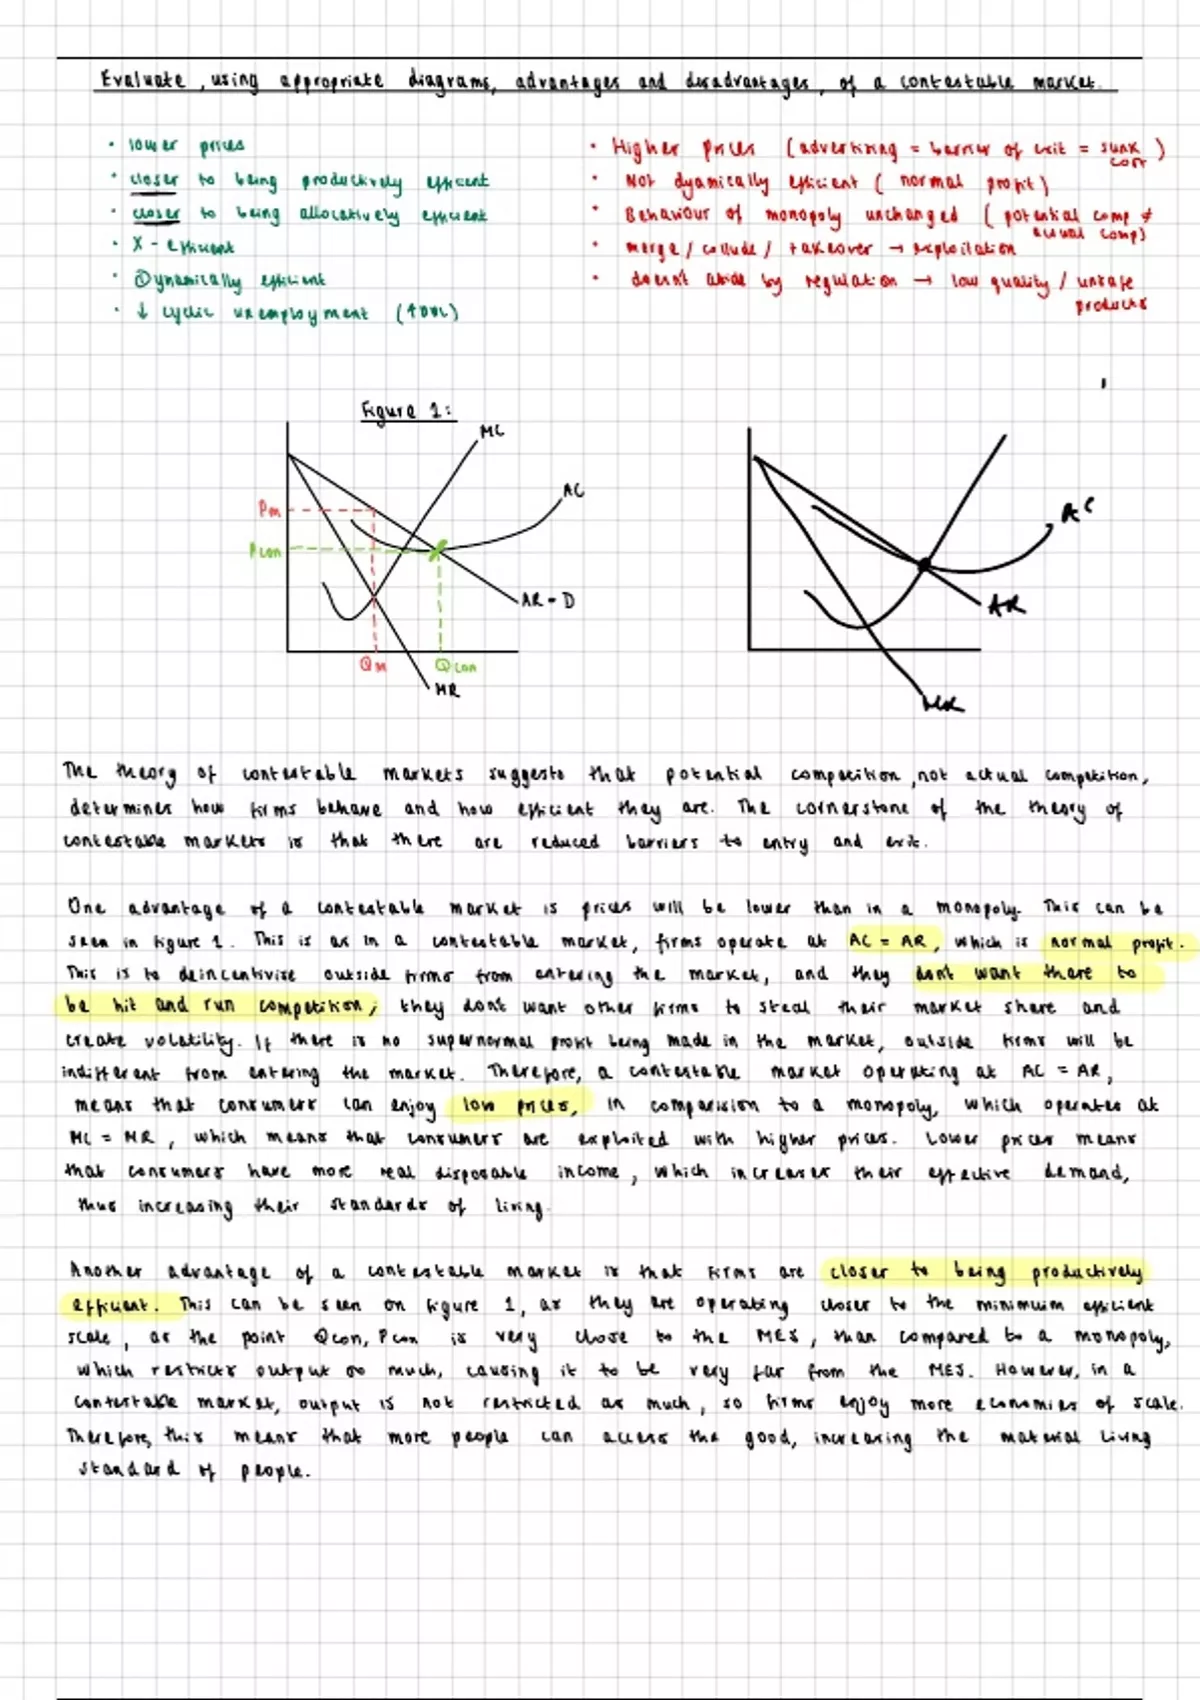 Evaluate, using appropriate diagrams, advantages and disadvantages, of a contestable market.
• lower prices
• closer to being productively efficient
• closer to being allocatively efficient
• X-efficient
• Dynamically efficient
• ↓ cyclic unemployment
• Higher prices (advertising = barrier of exit = sunk cost)
• Not dyamically efficient (normal profit)
• Behaviour of monopoly unchanged (potential comp ≠ actual comp)
• merge / collude / takeover → exploitation
• doesn't abide by regulation → low quality / unsafe products
Figure 1:
MC
AC
Pm
Pcon
AR = D
Qm
Qcon
MR
AC
AR
MR
The theory of contestable markets suggests that potential competition, not actual competition,
determines how firms behave and how efficient they are. The cornerstone of the theory of
contestable markets is that there are reduced barriers to entry and exit.
One advantage of a contestable market is prices will be lower than in a monopoly. This can be
seen in figure 1. This is as in a contestable market, firms operate at AC = AR, which is normal profit.
This is to deincentivise outside firms from entering the market, and they dont want there to
be hit and run competition; they dont want other firms to steal their market share and
create volatility. If there is no supernormal profit being made in the market, outside firms will be
indifferent from entering the market. Therefore, a contestable market operating at AC = AR,
means that consumers can enjoy low prices, in comparision to a monopoly, which operates at
MC = MR, which means that consumers are exploited with higher prices. Lower prices means
that consumers have more real disposable income, which increases their effective demand,
thus increasing their standards of living.
Another advantage of a contestable market is that firms are closer to being productively
efficient. This can be seen on figure 1, as they are operating closer to the minimum efficient
scale, as the point Qcon, Pcon is very close to the MES, than compared to a monopoly,
which restricts output so much, causing it to be very far from the MES. However, in a
contestable market, output is not restricted as much, so firms enjoy more economies of scale.
Therefore, this means that more people can access the good, increasing the material living
standard of people.